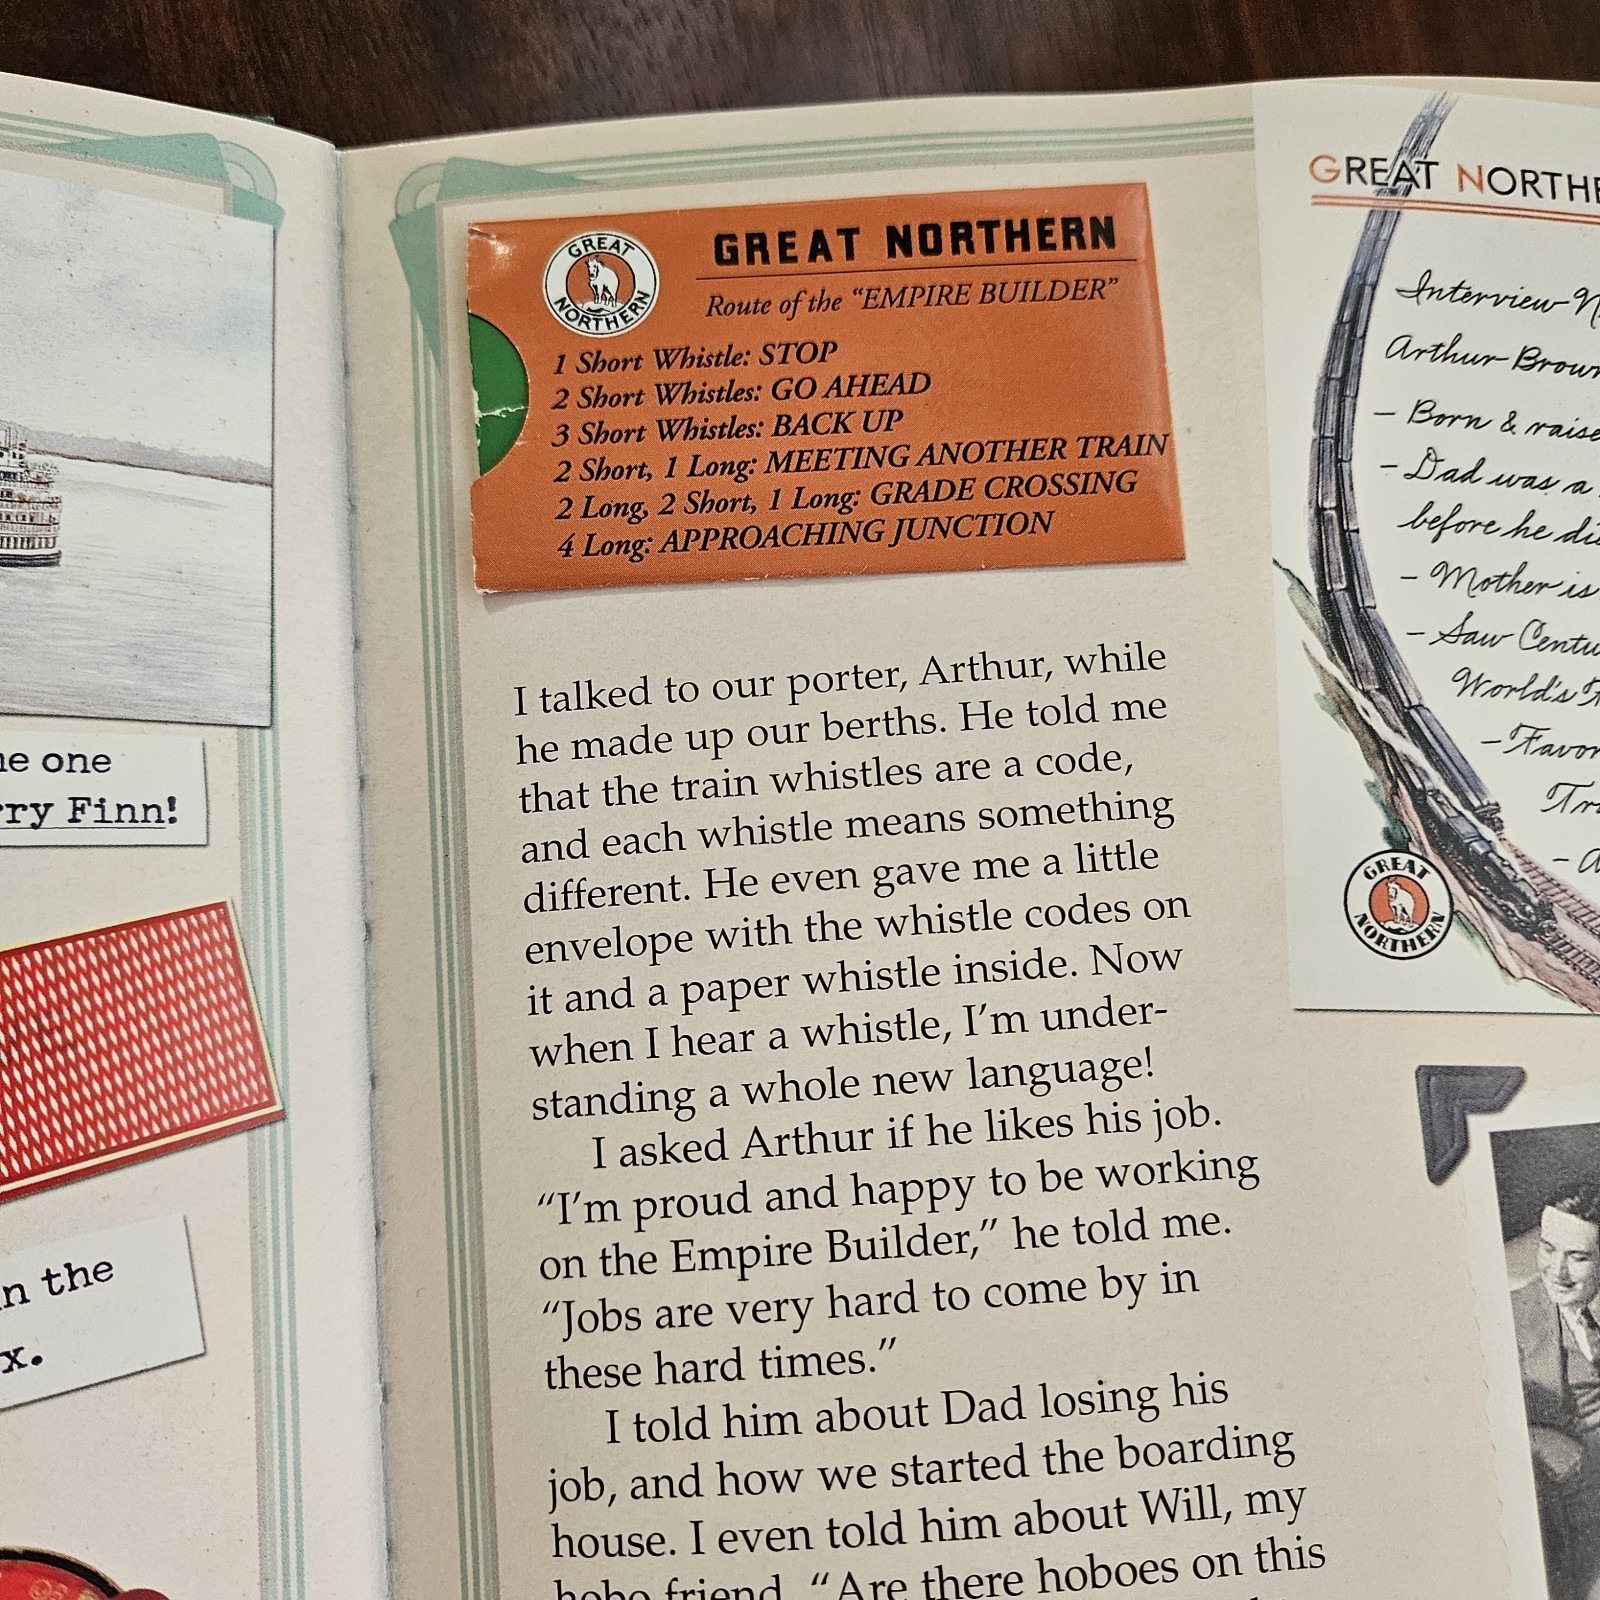 ne one
rry Finn!
n the
x.
GREAT NORTHERN
GREAT NORTHERN
Route of the “EMPIRE BUILDER”
1 Short Whistle: STOP
2 Short Whistles: GO AHEAD
3 Short Whistles: BACK UP
2 Short, 1 Long: MEETING ANOTHER TRAIN
2 Long, 2 Short, 1 Long: GRADE CROSSING
4 Long: APPROACHING JUNCTION
I talked to our porter, Arthur, while
he made up our berths. He told me
that the train whistles are a code,
and each whistle means something
different. He even gave me a little
envelope with the whistle codes on
it and a paper whistle inside. Now
when I hear a whistle, I’m under-
standing a whole new language!
I asked Arthur if he likes his job.
“I’m proud and happy to be working
on the Empire Builder,” he told me.
“Jobs are very hard to come by in
these hard times.”
I told him about Dad losing his
job, and how we started the boarding
house. I even told him about Will, my
hobo friend. “Are there hoboes on this
GREAT NORTHE
Interview N
Arthur Brow
– Born & raise
– Dad was a
before he di
– Mother is
– Saw Centu
World's
– Favor
Tr
GREAT NORTHERN